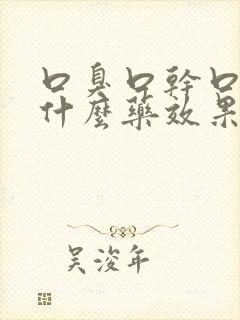 口臭口幹口
什麼藥效果
吴浚年